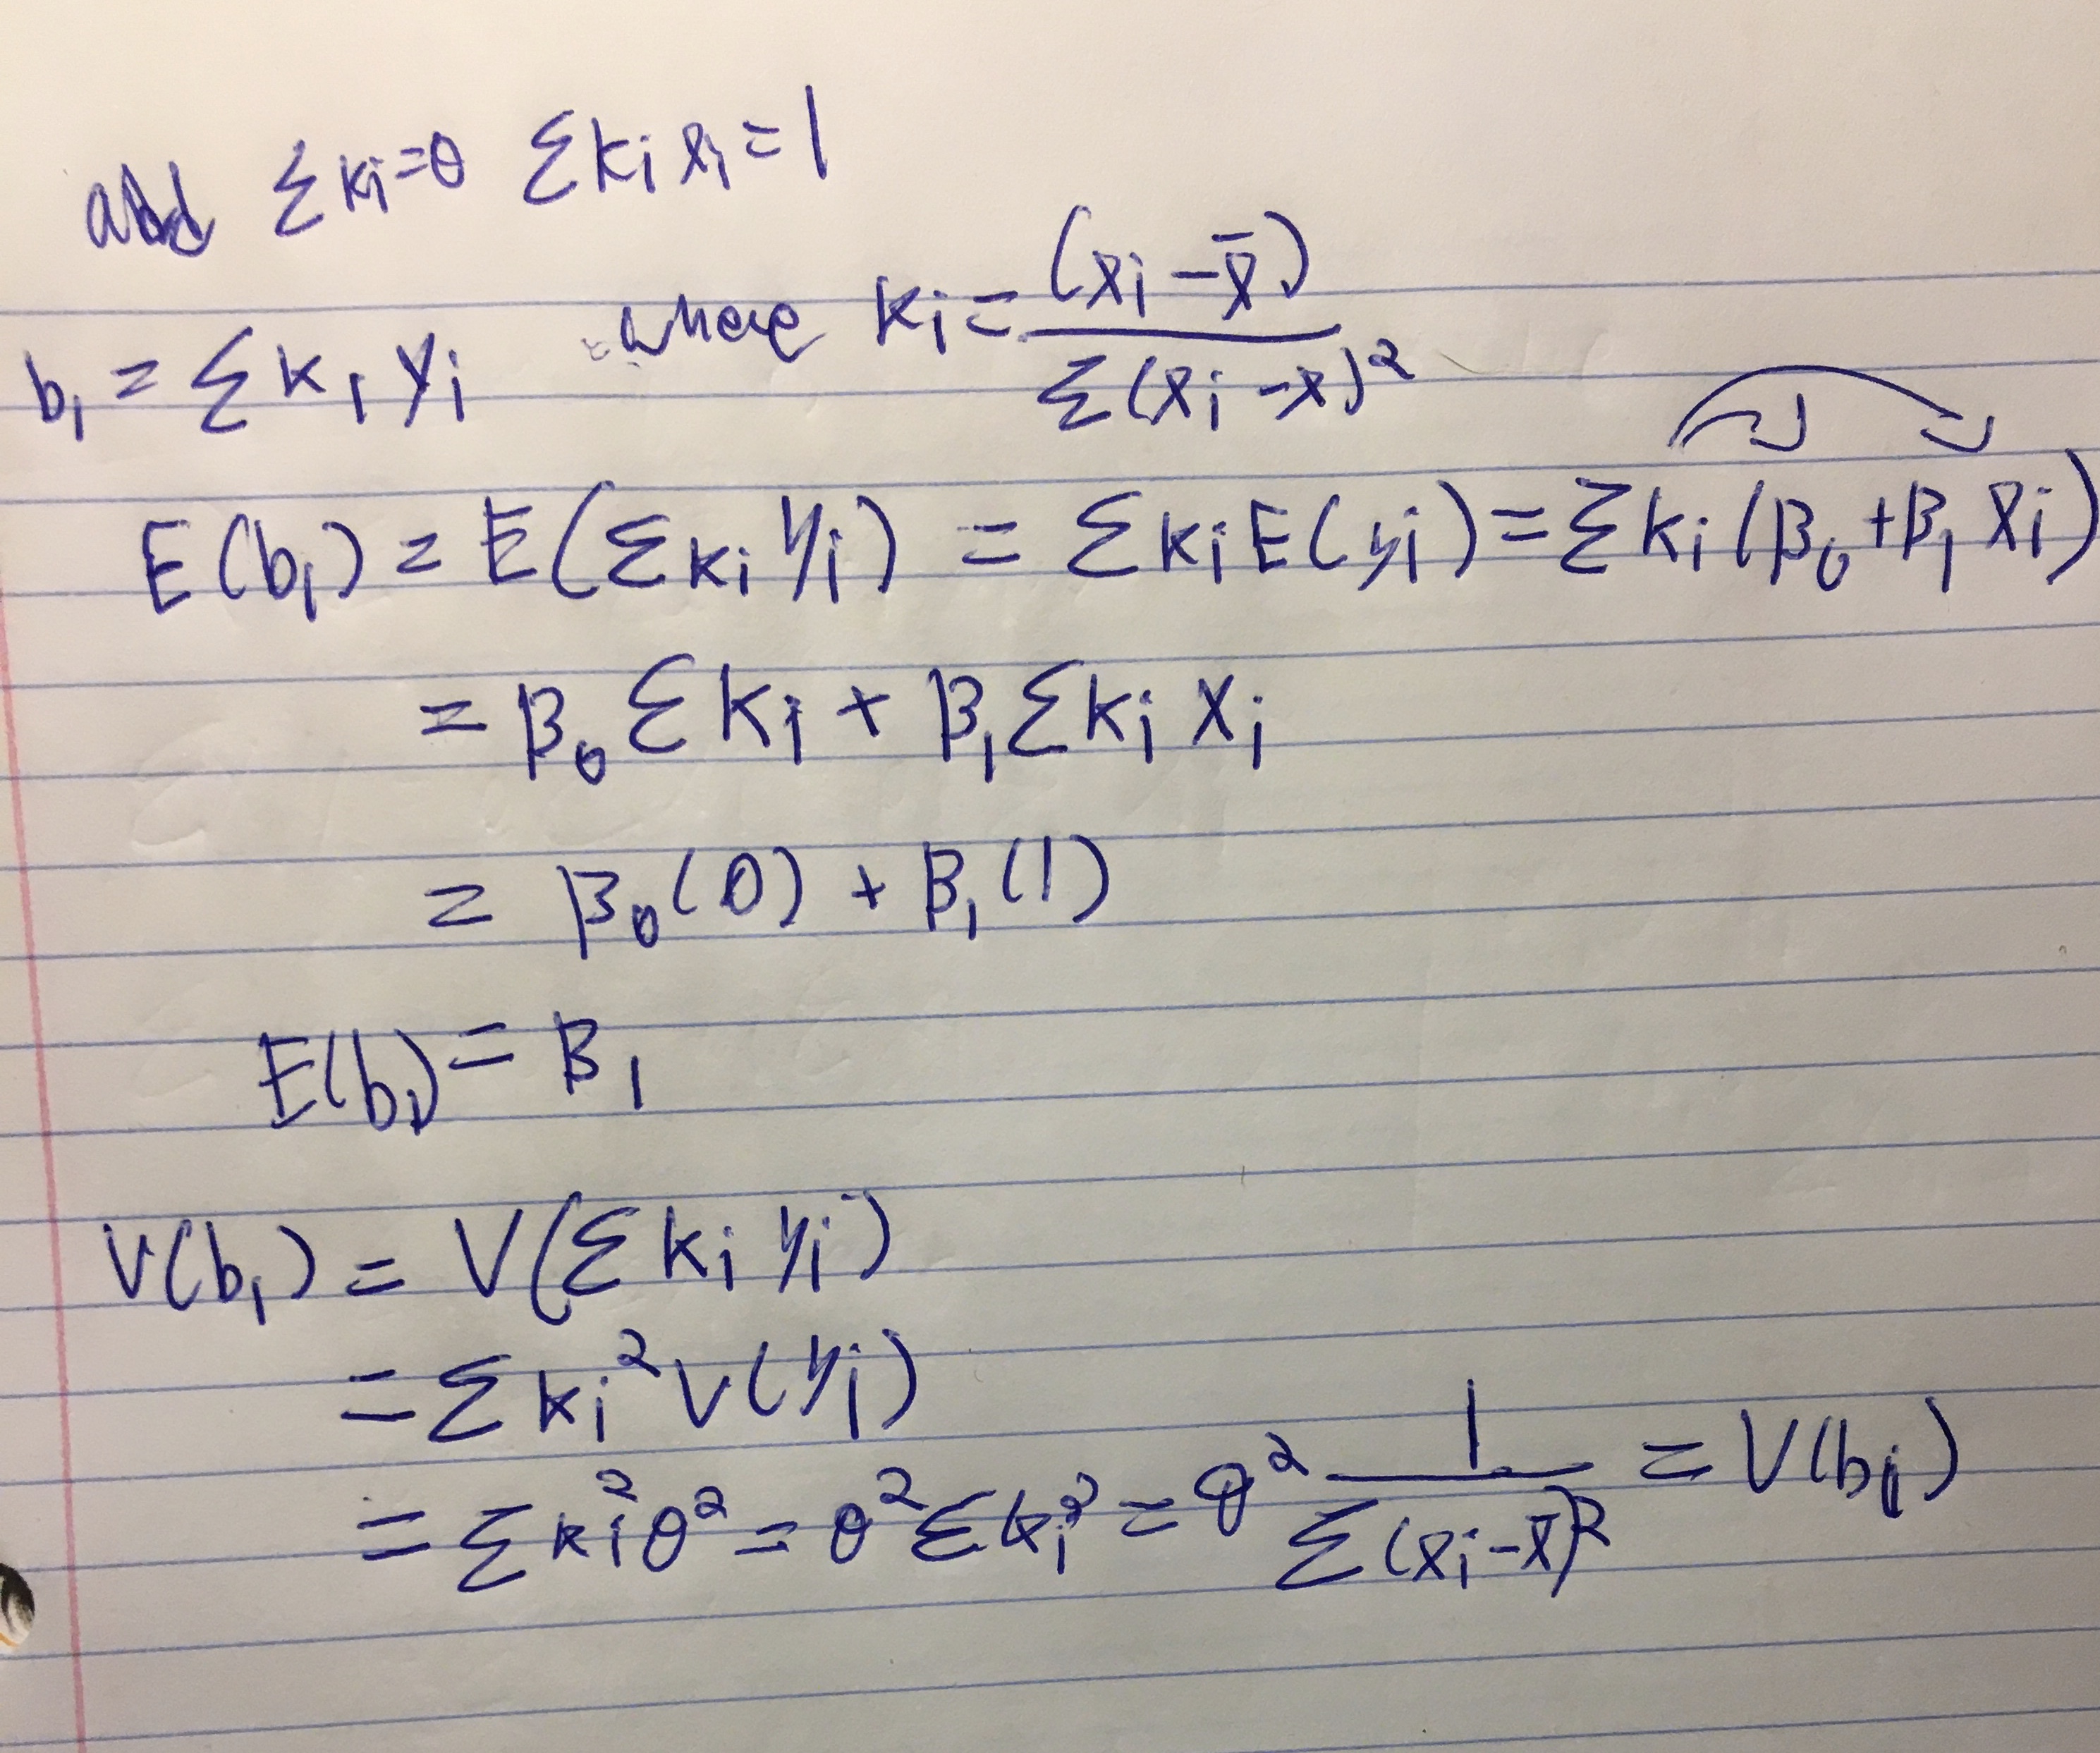 add Σki=0 Σkixi=1
b₁ = Σk₁yi where ki = (xi - x̄) / Σ(xi - x)²
E(b₁) = E(Σkiyi) = ΣkiE(yi) = Σki(β₀+β₁xi)
= β₀Σki + β₁Σkixi
= β₀(0) + β₁(1)
E(b₁) = β₁
V(b₁) = V(Σkiyi)
= Σki²V(yi)
= Σki²θ² = θ²Σki² = θ² 1 / Σ(xi-x̄)² = V(b₁)